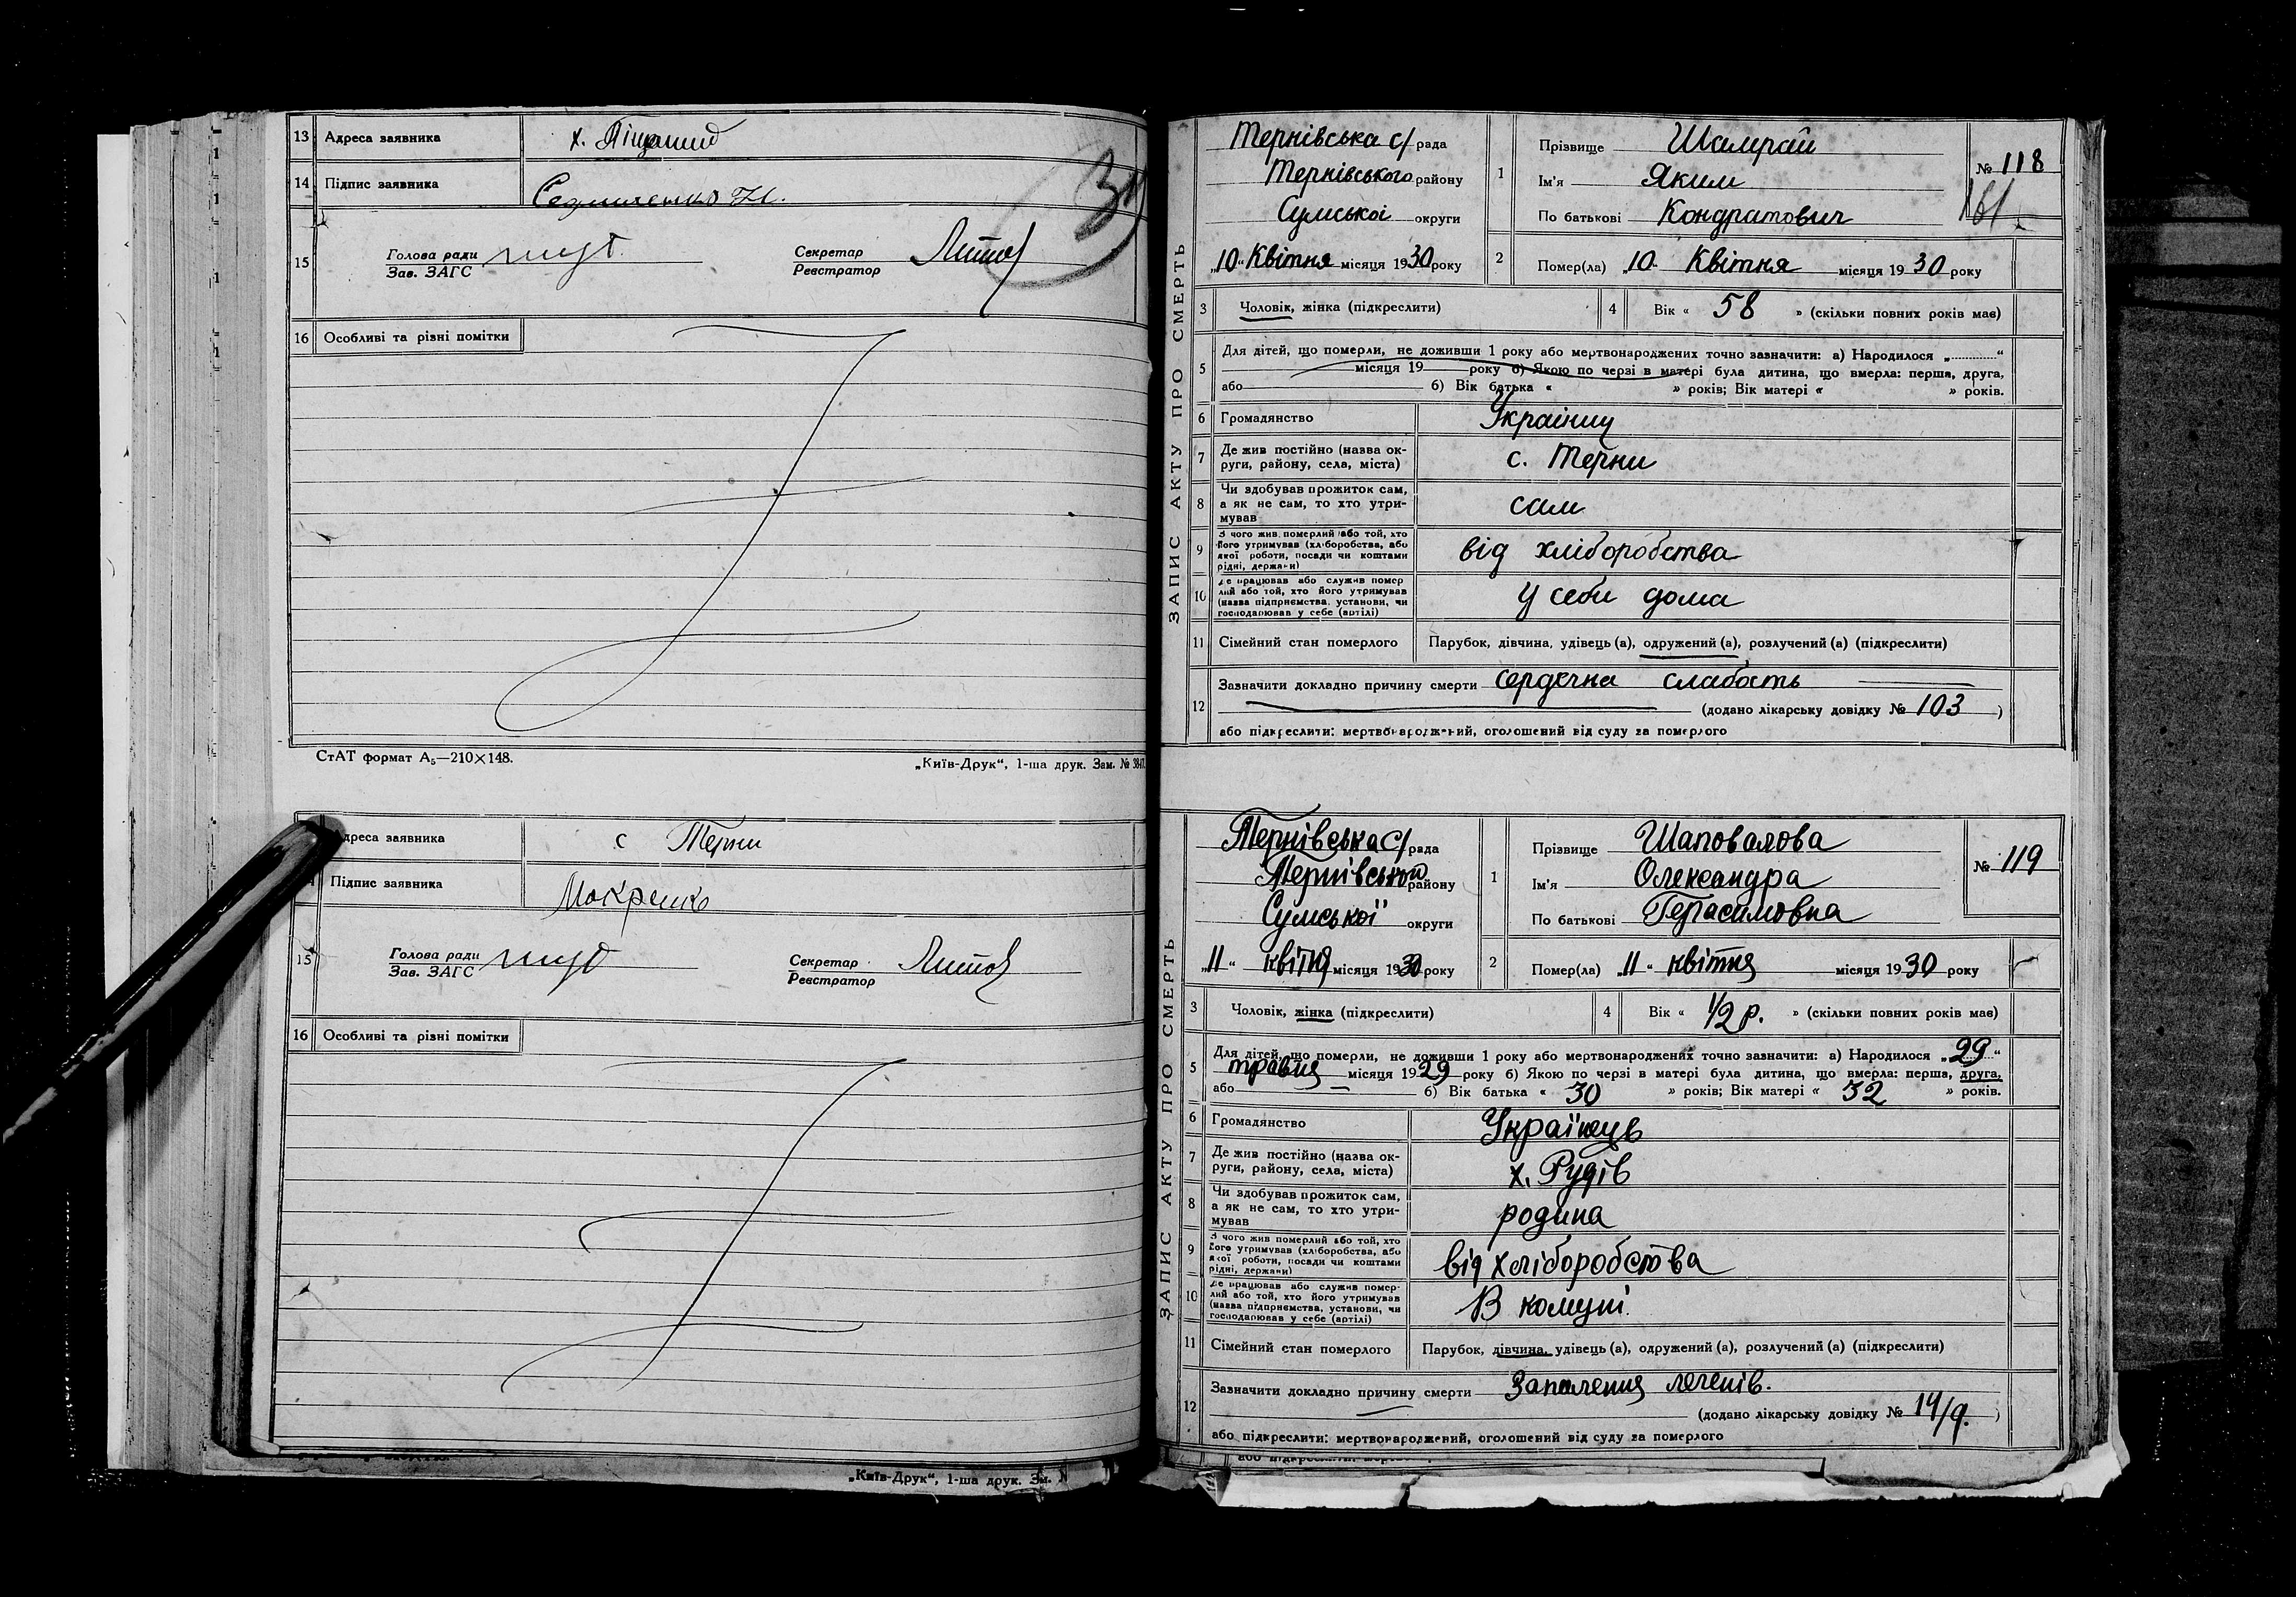 13 Адреса заявника х. Піщаний
14 Підпис заявника
15 Голова ради
Зав. ЗАГС
Секретар
Реєстратор
16 Особливі та різні помітки
СтАТ формат А₅—210×148.
„Київ-Друк“, 1-ша друк. Зам. №
Адреса заявника с Терни
Підпис заявника Мокренко
15 Голова ради
Зав. ЗАГС
Секретар
Реєстратор
16 Особливі та різні помітки
„Київ-Друк“, 1-ша друк. Зам.
ЗАПИС АКТУ ПРО СМЕРТЬ
Тернівська с/рада
Тернівського району
Сумської округи
„10“ Квітня місяця 1930 року
1 Прізвище Шамрай
Ім'я Яким
По батькові Кондратович
№ 118
161
2 Помер(ла) „10 Квітня місяця 1930 року
3 Чоловік, жінка (підкреслити)
4 Вік « 58 » (скільки повних років має)
5 Для дітей, що померли, не доживши 1 року або мертвонароджених точно зазначити: а) Народилося „............“
місяця 19 року б) Якою по черзі в матері була дитина, що вмерла: перша, друга,
або б) Вік батька « » років; Вік матері « » років.
6 Громадянство Українц
7 Де жив постійно (назва ок-
руги, району, села, міста) с. Терни
8 Чи здобував прожиток сам,
а як не сам, то хто утри-
мував сам
9 З чого жив померлий або той, хто
його утримував (хліборобства, або
якої роботи, посади чи коштами
рідні, держави) від хліборобства
10 Де працював або служив помер
лий або той, хто його утримував
(назва підприємства, установи, чи
господарював у себе (артілі) у себи дома
11 Сімейний стан померлого Парубок, дівчина, удівець (а), одружений (а), розлучений (а) (підкреслити)
12 Зазначити докладно причину смерти сердечна слабость
(додано лікарську довідку № 103 )
або підкреслити: мертвонароджений, оголошений від суду за померлого
ЗАПИС АКТУ ПРО СМЕРТЬ
Тернівська с/рада
Тернівського району
Сумської округи
„11“ квітня місяця 1930 року
1 Прізвище Шаповалова
Ім'я Олександра
По батькові Герасимовна
№ 119
2 Помер(ла) „11“ квітня місяця 1930 року
3 Чоловік, жінка (підкреслити)
4 Вік « 1/2 р. » (скільки повних років має)
5 Для дітей, що померли, не доживши 1 року або мертвонароджених точно зазначити: а) Народилося „29“
травня місяця 1929 року б) Якою по черзі в матері була дитина, що вмерла: перша, друга,
або б) Вік батька « 30 » років; Вік матері « 32 » років.
6 Громадянство Українців
7 Де жив постійно (назва ок-
руги, району, села, міста) х. Рудів
8 Чи здобував прожиток сам,
а як не сам, то хто утри-
мував родина
9 З чого жив померлий або той, хто
його утримував (хліборобства, або
якої роботи, посади чи коштами
рідні, держави) від хліборобства
10 Де працював або служив помер-
лий або той, хто його утримував
(назва підприємства, установи, чи
господарював у себе (артілі) В комуні.
11 Сімейний стан померлого Парубок, дівчина, удівець (а), одружений (а), розлучений (а) (підкреслити)
12 Зазначити докладно причину смерти Запалення легенів.
(додано лікарську довідку № 14/9. )
або підкреслити: мертвонароджений, оголошений від суду за померлого